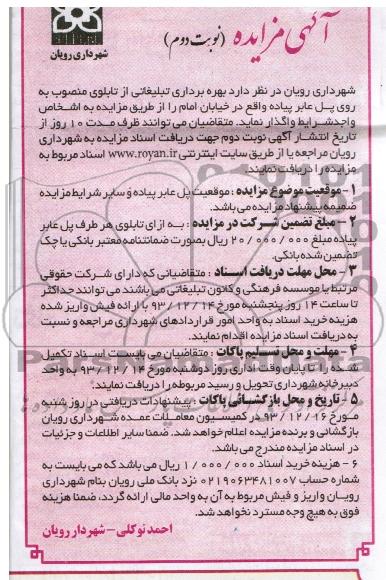 آگهی مزایده (نوبت دوم)
شهرداری رویان
شهرداری رویان در نظر دارد بهره برداری تبلیغاتی از تابلوی منصوب به
روی پل عابر پیاده واقع در خیابان امام را از طریق مزایده به اشخاص
واجدشرایط واگذار نماید. متقاضیان می توانند ظرف مدت ۱۰ روز از
تاریخ انتشار آگهی نوبت دوم جهت دریافت اسناد مزایده به شهرداری
رویان مراجعه یا از طریق سایت اینترنتی www.royan.ir اسناد مربوط به
مزایده را دریافت نمایند.
۱- موقعیت موضوع مزایده : موقعیت پل عابر پیاده و سایر شرایط مزایده
ضمیمه پیشنهاد مزایده می باشد.
۲- مبلغ تضمین شرکت در مزایده : به ازای تابلوی هر طرف پل عابر
پیاده مبلغ ۲۰/۰۰۰/۰۰۰ ریال بصورت ضمانتنامه معتبر بانکی یا چک
تضمین شده بانکی.
۳- محل مهلت دریافت اسناد : متقاضیانی که دارای شرکت حقوقی
مرتبط یا موسسه فرهنگی و کانون تبلیغاتی می باشند می توانند حداکثر
تا ساعت ۱۴ روز پنجشنبه مورخ ۹۳/۱۲/۱۴ با ارائه فیش واریز شده
هزینه خرید اسناد به واحد امور قراردادهای شهرداری مراجعه و نسبت
به دریافت اسناد مزایده اقدام نمایند.
۴- مهلت و محل تسلیم پاکات : متقاضیان می بایست اسناد تکمیل
شده را تا پایان وقت اداری روز دوشنبه مورخ ۹۳/۱۲/۱۴ به واحد
دبیرخانه شهرداری تحویل و رسید مربوطه را دریافت نمایند.
۵- تاریخ و محل بازگشائی پاکات : پیشنهادات دریافتی در روز شنبه
مورخ ۹۳/۱۲/۱۶ در کمیسیون معاملات عمده شهرداری رویان
بازگشائی و برنده مزایده اعلام خواهد شد. ضمنا سایر اطلاعات و جزئیات
در اسناد مزایده مندرج می باشد.
۶- هزینه خرید اسناد ۱/۰۰۰/۰۰۰ ریال می باشد که می بایست به
شماره حساب ۰۲۱۹۰۶۳۴۸۱۰۰۷ نزد بانک ملی رویان بنام شهرداری
رویان واریز و فیش مربوط به آن به واحد مالی ارائه گردد، ضمنا هزینه
فوق به هیچ وجه مسترد نخواهد شد.
احمد توکلی - شهردار رویان